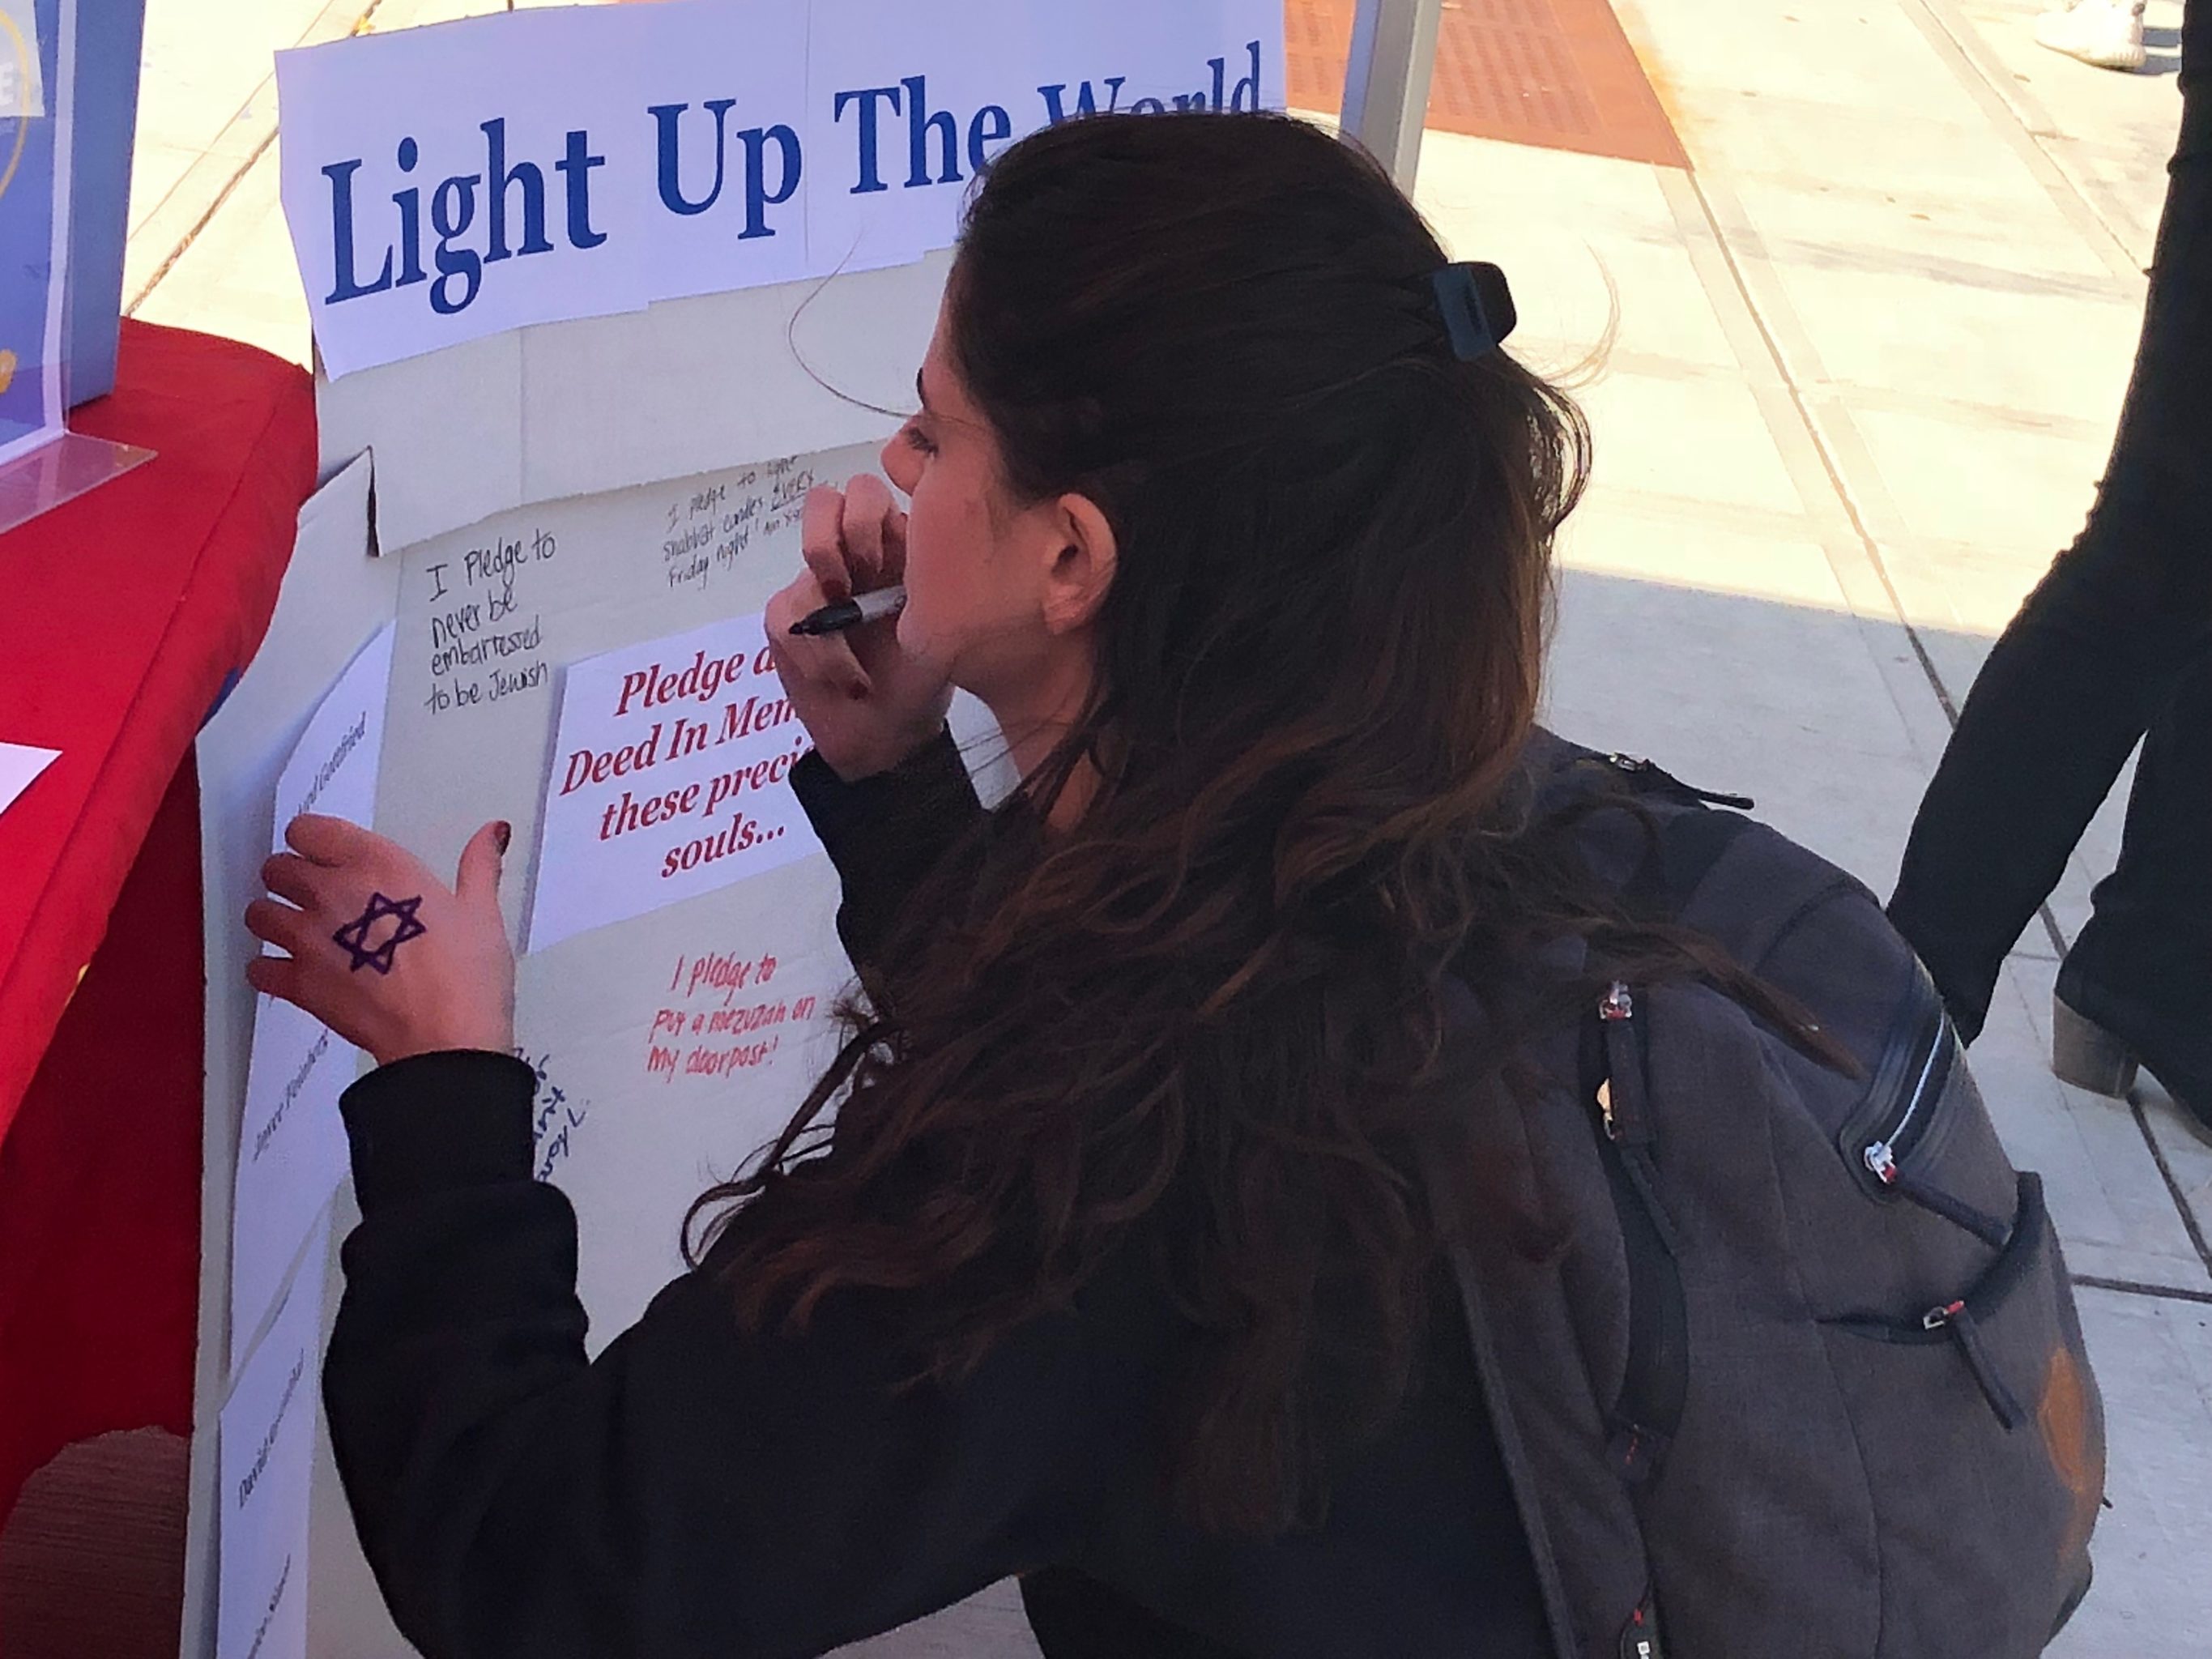 Light Up The World
I Pledge to
never be
embarressed
to be Jewish
I pledge to light
shabbat candles EVERY
Friday night!
Pledge a
Deed In Mem
these preci
souls...
I pledge to
Put a mezuzah on
My doorpost!
Gottfried
Jerry
David